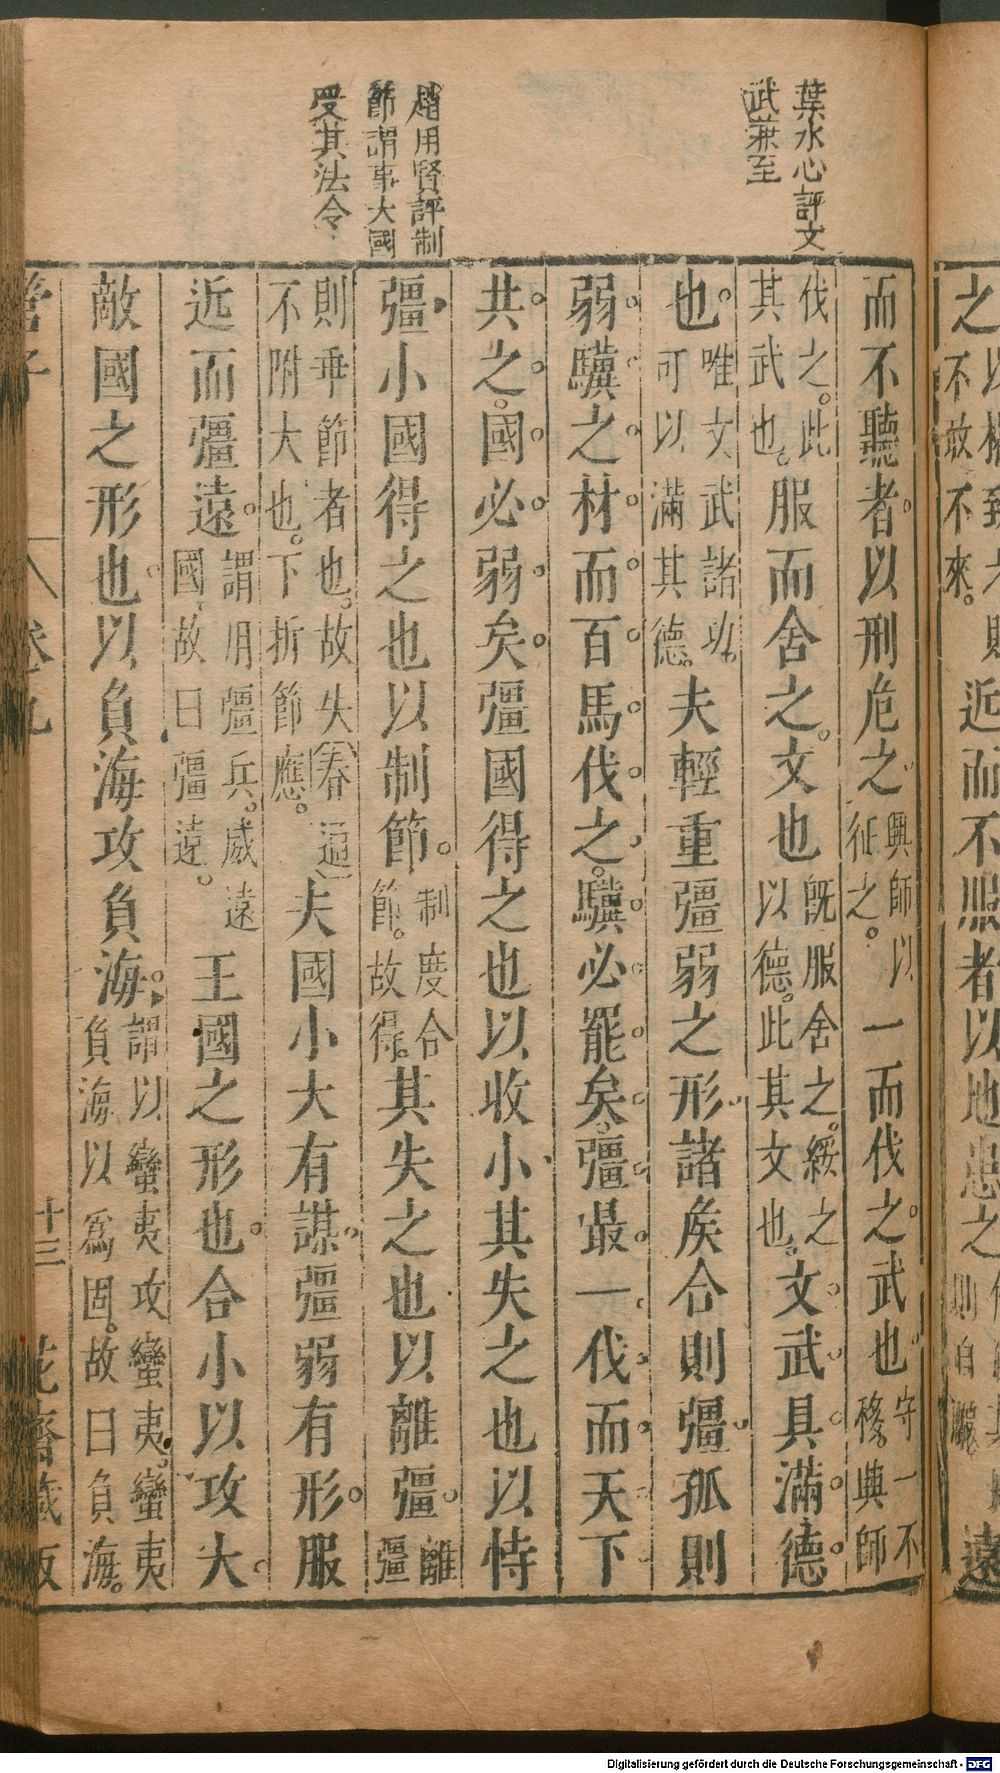 葉水心評文
武兼至
趙用賢評制
節謂事大國
受其法令
不敢不來。
近而不服者以地患之
則自服
遠
而不聽者以刑危之興師以征之。一而伐之武也守一不移。興師
伐之。此其武也。服而舍之。文也既服舍之。綏之以德。此其文也。文武具滿德
也。唯文武諸功。可以滿其德。夫輕重彊弱之形諸矦合則彊孤則
弱驥之材而百馬伐之。驥必罷矣彊最一伐而天下
共之。國必弱矣彊國得之也以收小其失之也以恃
彊小國得之也以制節制度合節。故得。其失之也以離彊離彊
則垂節者也。故失不附大也。下折節應。夫國小大有謀彊弱有形服
近而彊遠謂用彊兵。威遠國故曰彊遠。王國之形也合小以攻大
敵國之形也以負海攻負海謂以蠻夷攻蠻夷。蠻夷負海以為固。故曰負海。
管子
卷九
十三
花齋藏板
Digitalisierung gefördert durch die Deutsche Forschungsgemeinschaft - DFG